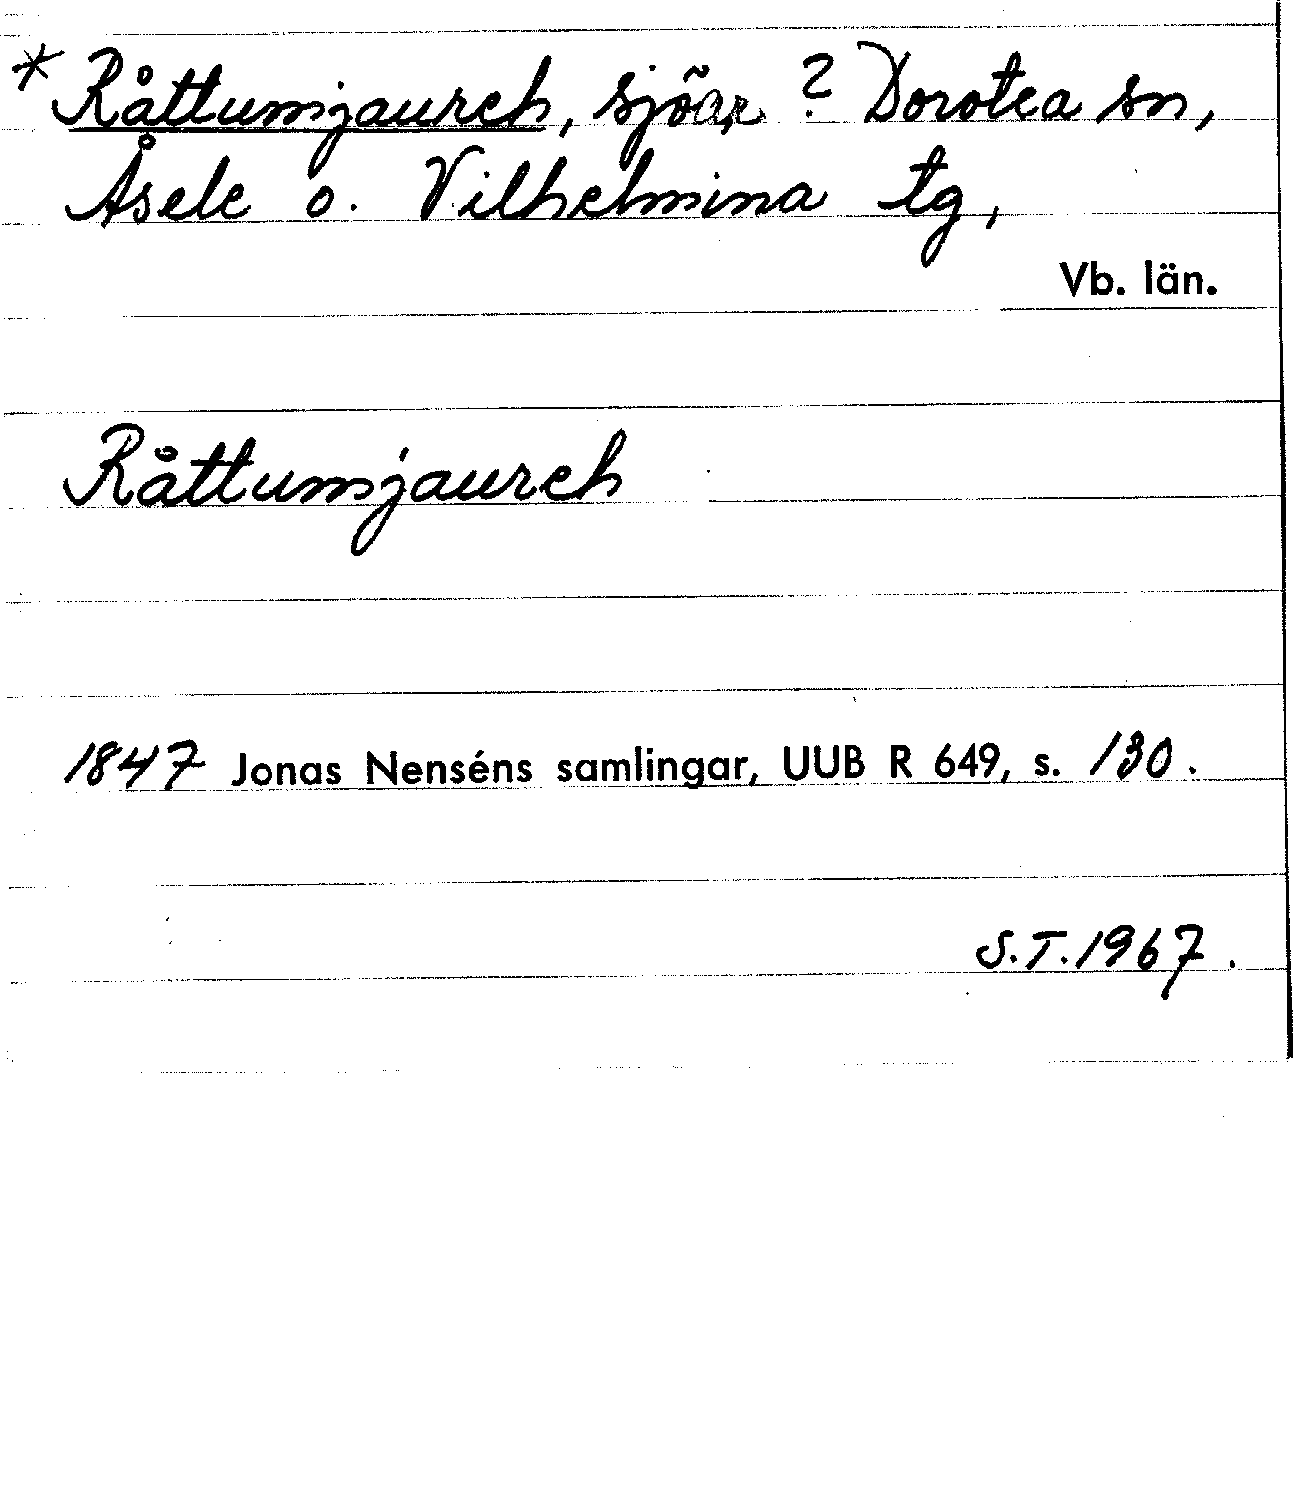 * Råttumjaureh, sjöar ? Dorotea sn,
Åsele o. Vilhelmina tg,
Vb. län.
Råttumjaureh
1847 Jonas Nenséns samlingar, UUB R 649, s. 130.
S.T. 1967.